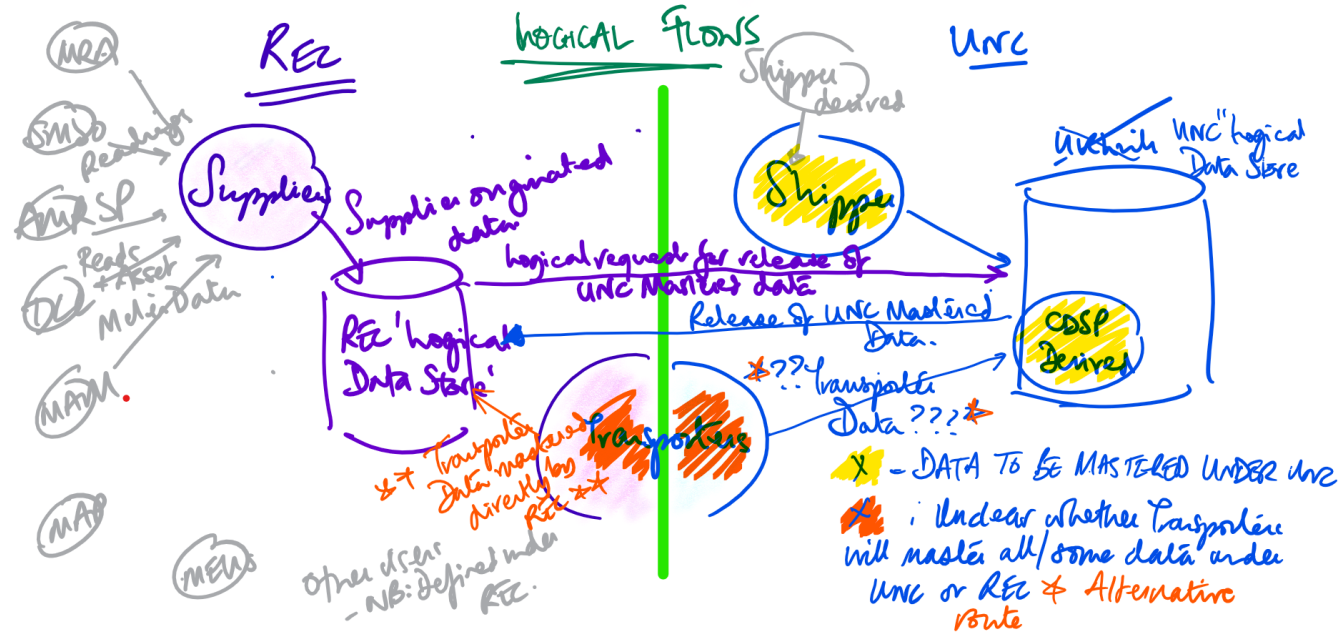 LOGICAL FLOWS
REC
UNC
MRA
SMSO
Readings
AMR SP
Reads
+ Asset
Meter Data
DCC
MAM
MAP
MEUs
Other User
- NB: Defined under
REC.
Supplier
Supplier originated
data
REC 'Logical
Data Store'
Logical request for release of
UNC Mastered data
Release of UNC Mastered
Data.
Shipper
derived
Shipper
UNC "Logical
Data Store
CDSP
Derived
Transporters
** Transporter
Data mastered
directly by
REC **
*??Transporter
Data???*
X - DATA TO BE MASTERED UNDER UNC
X : Unclear whether Transporters
will master all/some data under
UNC or REC * Alternative
route